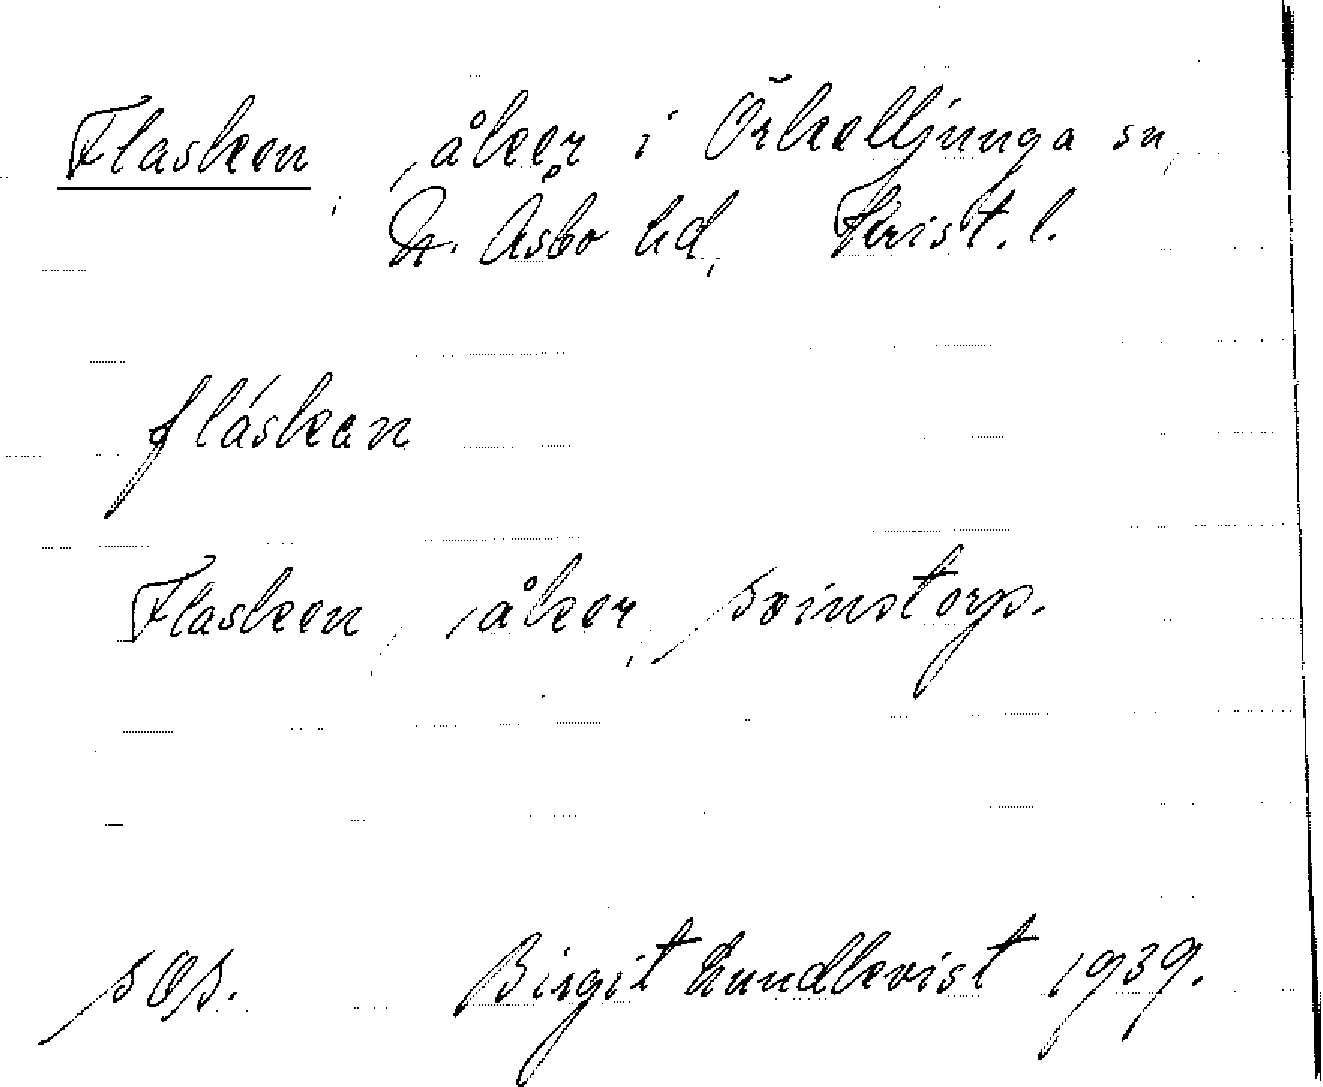 Flasken, åker i Örkelljunga sn,
N. Åsbo hd, Krist. l.
fláskan
Flasken, åker, Svinstorp.
Birgit Lundkvist 1939.